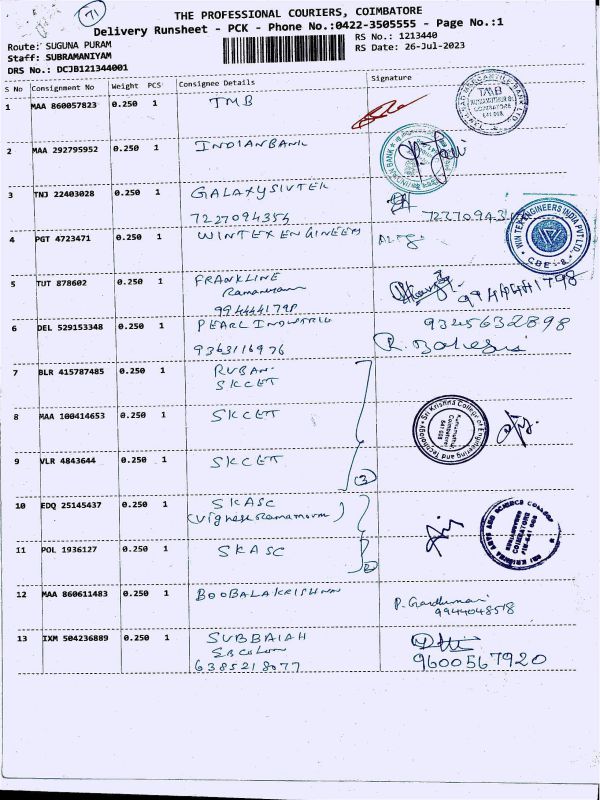 71
THE PROFESSIONAL COURIERS, COIMBATORE
Delivery Runsheet - PCK - Phone No.:0422-3505555 - Page No.:1
Route: SUGUNA PURAM
RS No.: 1213440
Staff: SUBRAMANIYAM
RS Date: 26-Jul-2023
DRS No.: DCJB121344001
S No Consignment No Weight PCS Consignee Details Signature
1 MAA 860057823 0.250 1 TMB
TMB
COIMBATORE
641 008
2 MAA 292795952 0.250 1 INDIANBANK
3 TNJ 22403028 0.250 1 GALAXYSIVTEK
7227094354
4 PGT 4723471 0.250 1 WINTEX ENGINEERS
WINTEX ENGINEERS INDIA PVT LTD.
CBE-8
5 TUT 878602 0.250 1 FRANKLINE
9944441798 9944441798
6 DEL 529153348 0.250 1 PEARL INDUSTRIES 9345632898
9363116976
7 BLR 415787485 0.250 1 RUBAN
SKCET
8 MAA 100414653 0.250 1 SKCET
Sri Krishna College of Engineering and Technology
Kuniamuthur
Coimbatore
641 008
9 VLR 4843644 0.250 1 SKCET
(3)
10 EDQ 25145437 0.250 1 SKASC
(Vignesh Ramamoorthi)
SRI KRISHNA ARTS AND SCIENCE COLLEGE
KUNIAMUTHUR
COIMBATORE
11 POL 1936127 0.250 1 SKASC
(2)
12 MAA 860611483 0.250 1 BOOBALAKRISHNAN
9944048578
13 IXM 504236889 0.250 1 SUBBAIAH
6385218077 9600567920